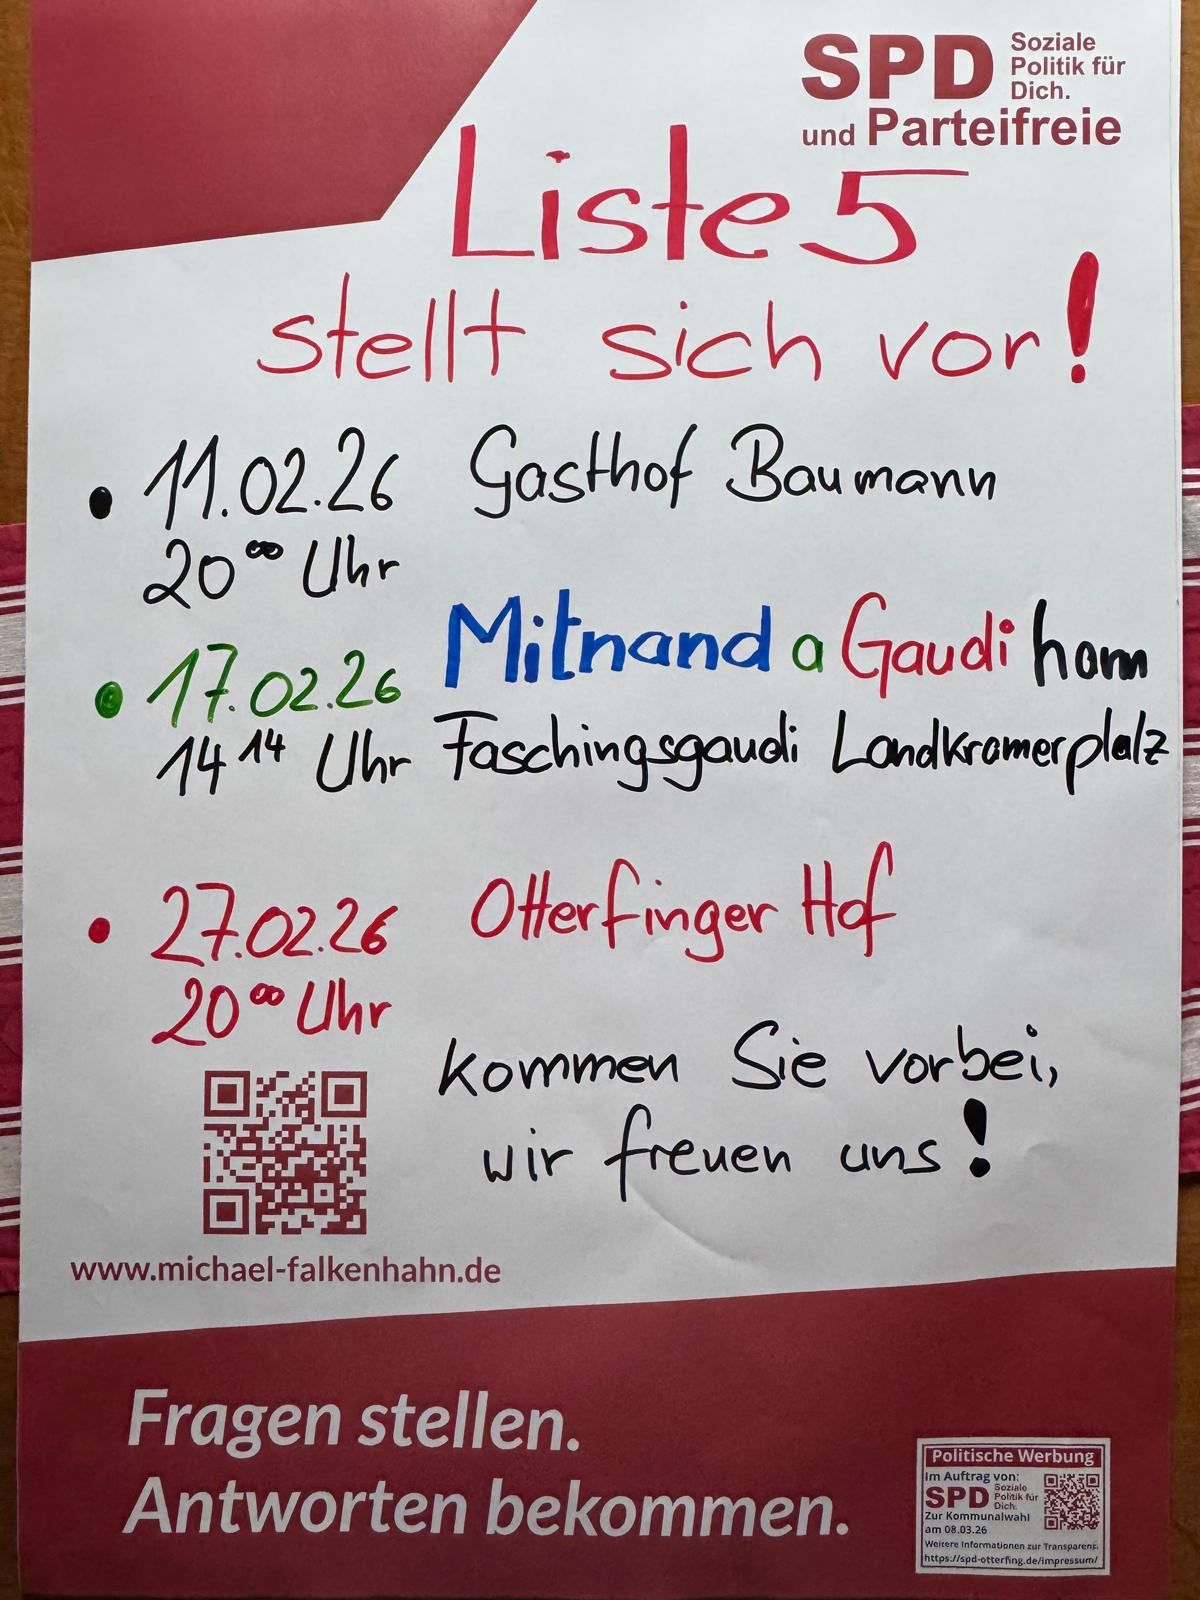 SPD Soziale
Politik für
Dich.
und Parteifreie
Liste 5
stellt sich vor!
• 11.02.26 Gasthof Baumann
20⁰⁰ Uhr
Mitnand a Gaudi ham
• 17.02.26
14¹⁴ Uhr Faschingsgaudi Landkramerplatz
• 27.02.26 Otterfinger Hof
20⁰⁰ Uhr
kommen Sie vorbei,
wir freuen uns!
www.michael-falkenhahn.de
Fragen stellen.
Antworten bekommen.
Politische Werbung
Im Auftrag von:
SPD Soziale
Politik für
Dich.
Zur Kommunalwahl
am 08.03.26
Weitere Informationen zur Transparenz:
https://spd-otterfing.de/impressum/